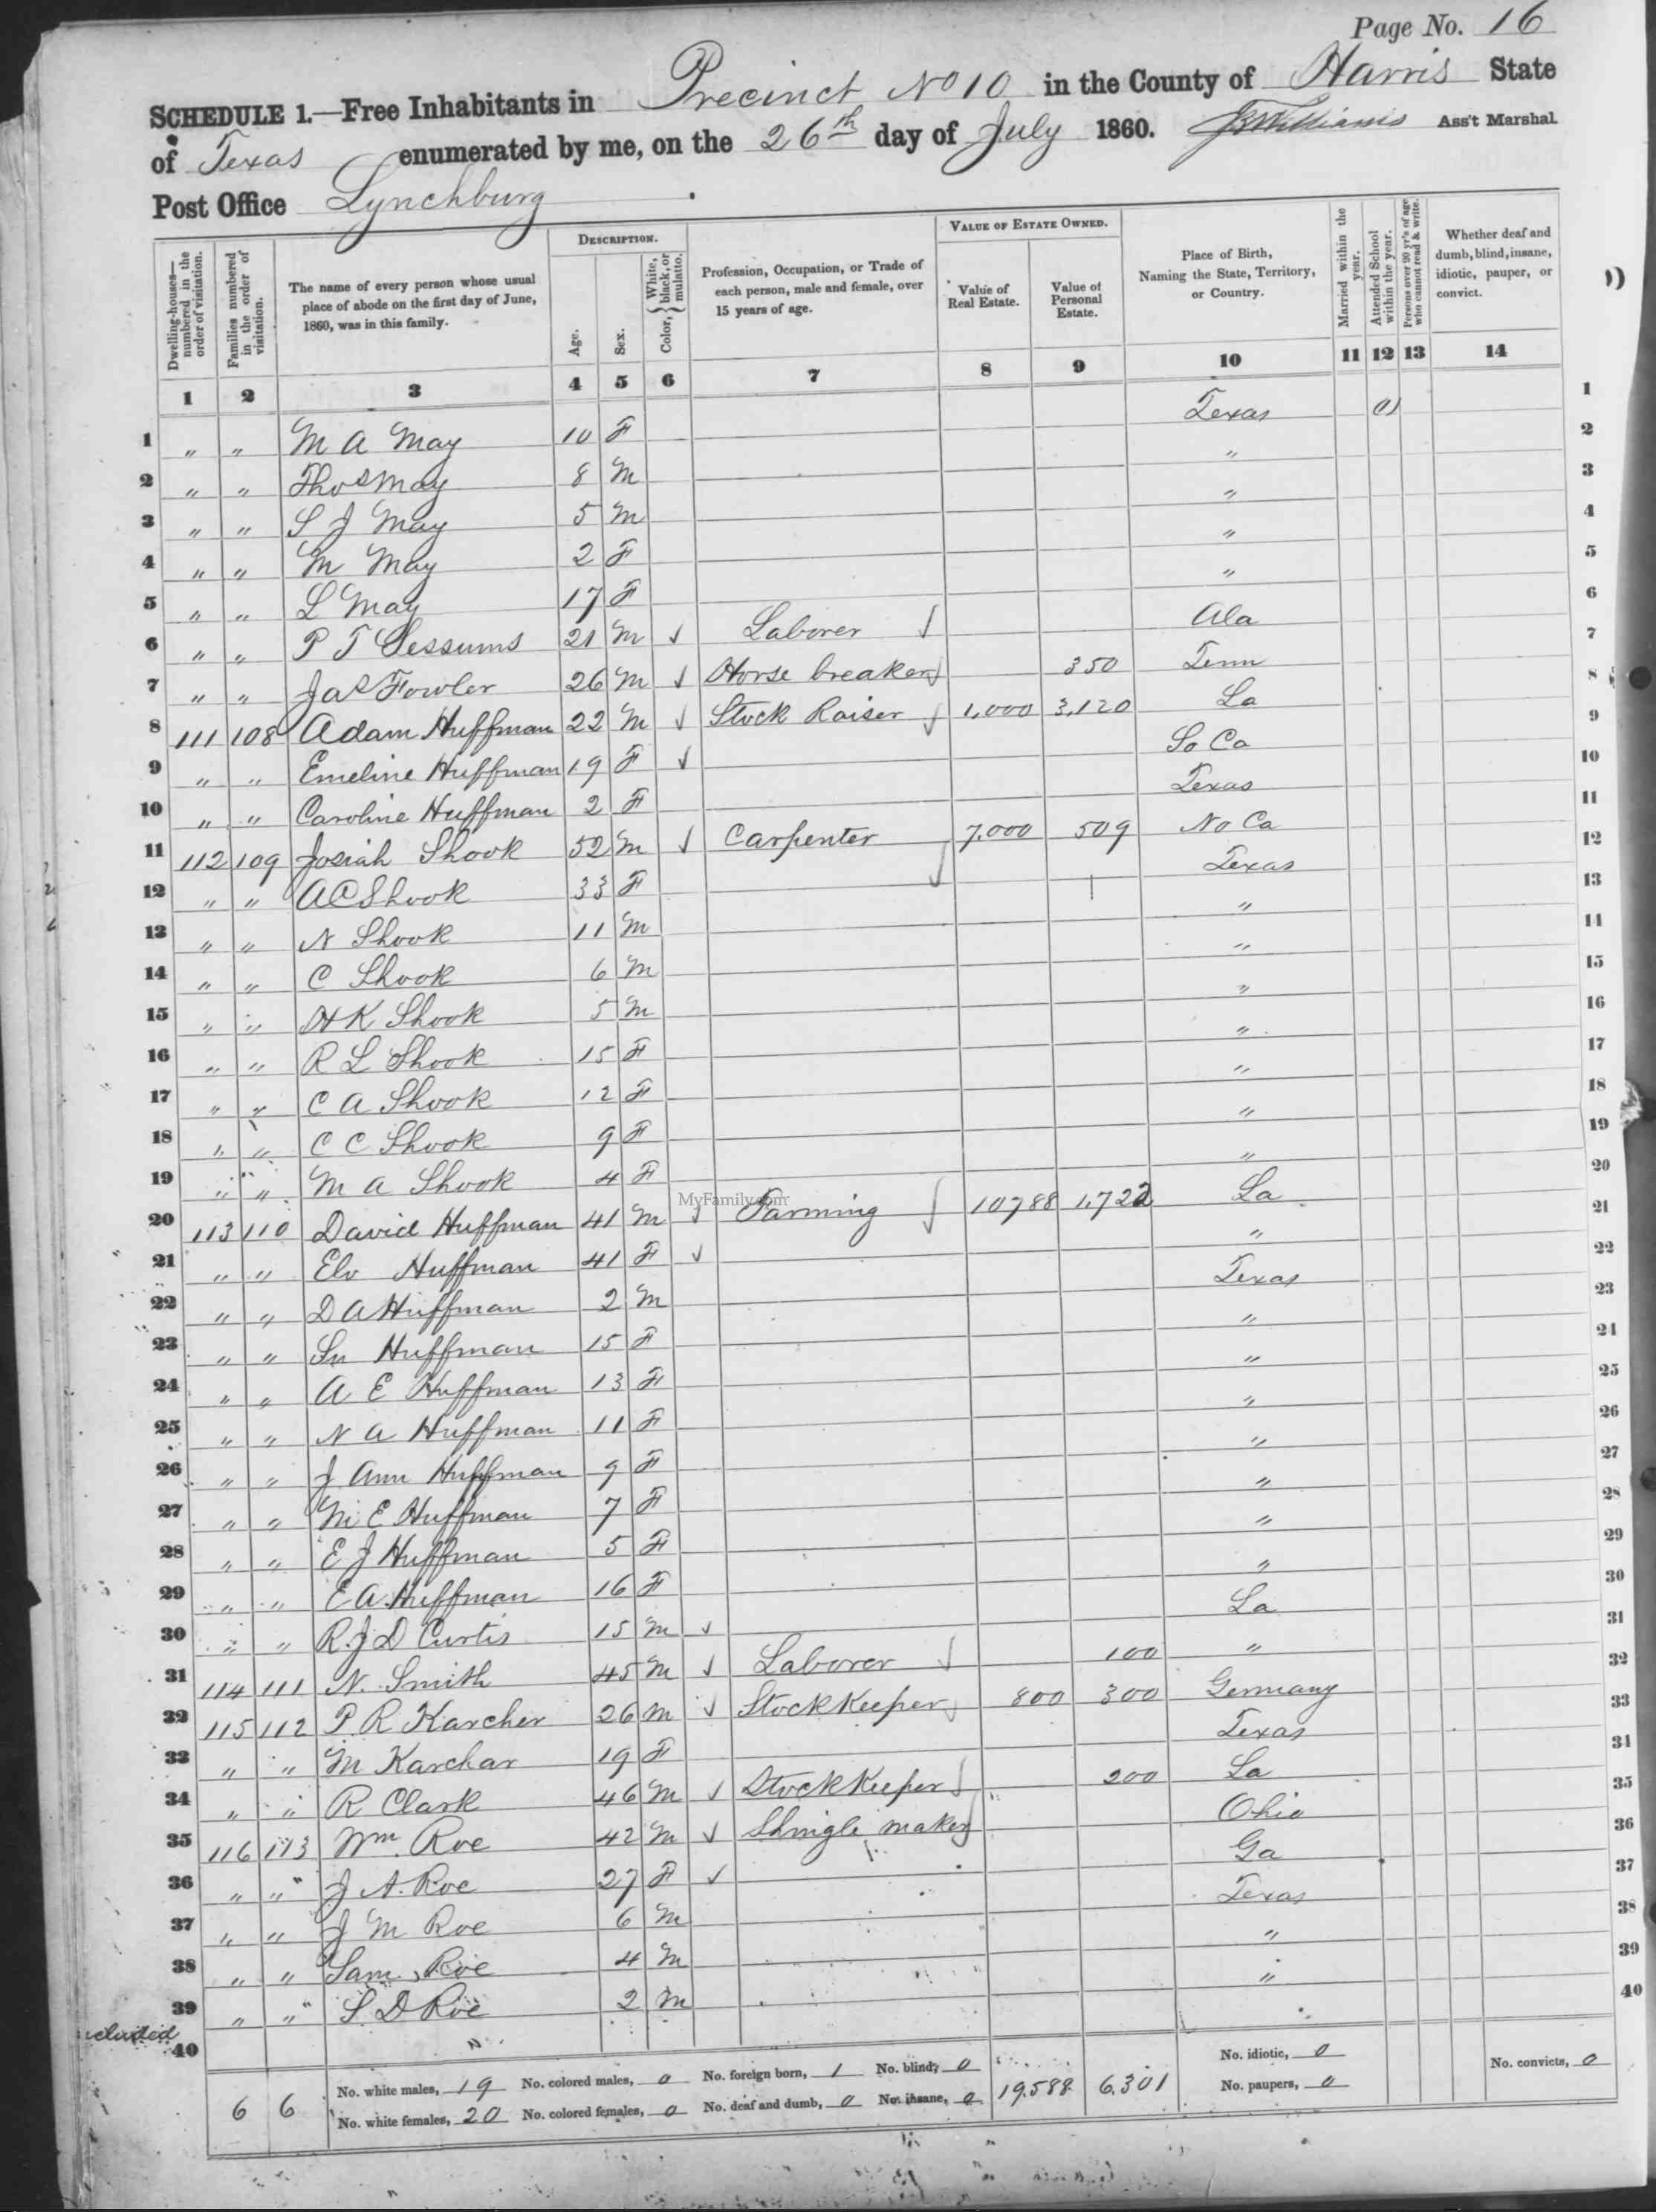 Page No. 16
SCHEDULE 1.—Free Inhabitants in Precinct No 10 in the County of Harris State
of Texas enumerated by me, on the 26th day of July 1860. JBWilliams Ass't Marshal.
Post Office Lynchburg
DESCRIPTION. VALUE OF ESTATE OWNED.
Dwelling-houses—numbered in the order of visitation. Families numbered in the order of visitation. The name of every person whose usual place of abode on the first day of June, 1860, was in this family. Age. Sex. Color, White, black, or mulatto. Profession, Occupation, or Trade of each person, male and female, over 15 years of age. Value of Real Estate. Value of Personal Estate. Place of Birth, Naming the State, Territory, or Country. Married within the year. Attended School within the year. Persons over 20 yr's of age who cannot read & write. Whether deaf and dumb, blind, insane, idiotic, pauper, or convict.
1 2 3 4 5 6 7 8 9 10 11 12 13 14
1 " " M A May 10 F Texas 1 1
2 " " Thos May 8 M " 2
3 " " S J May 5 M " 3
4 " " M May 2 F " 4
5 " " L May 17 F " 5
6 " " P T Sessums 21 M ✓ Laborer ✓ Ala 6
7 " " Jas Fowler 26 M ✓ Horse breaker ✓ 350 Tenn 7
8 111 108 Adam Huffman 22 M ✓ Stock Raiser ✓ 1,000 3,120 La 8
9 " " Emeline Huffman 19 F ✓ So Ca 9
10 " " Caroline Huffman 2 F Texas 10
11 112 109 Josiah Shook 52 M ✓ Carpenter ✓ 7,000 509 No Ca 11
12 " " A C Shook 33 F Texas 12
13 " " N Shook 11 M " 13
14 " " C Shook 6 M " 14
15 " " H K Shook 5 M " 15
16 " " R L Shook 15 F " 16
17 " " C A Shook 12 F " 17
18 " " C C Shook 9 F " 18
19 " " M A Shook 4 F " 19
MyFamily.com
20 113 110 David Huffman 41 M ✓ Farming ✓ 10788 1,722 La 20
21 " " Elv Huffman 41 F ✓ " 21
22 " " D A Huffman 2 M Texas 22
23 " " Su Huffman 15 F " 23
24 " " A E Huffman 13 F " 24
25 " " N A Huffman 11 F " 25
26 " " J Ann Huffman 9 F " 26
27 " " M E Huffman 7 F " 27
28 " " E J Huffman 5 F " 28
29 " " E A Huffman 16 F " 29
30 " " R. J D Curtis 15 M ✓ La 30
31 114 111 N. Smith 45 M ✓ Laborer ✓ 100 " 31
32 115 112 P. R Karcher 26 M ✓ Stock Keeper ✓ 800 300 Germany 32
33 " " M Karchar 19 F Texas 33
34 " " R Clark 46 M ✓ Stock Keeper ✓ 200 La 34
35 116 113 Wm. Roe 42 M ✓ Shingle maker Ohio 35
36 " " J A. Roe 27 F ✓ Ga 36
37 " " J M Roe 6 M Texas 37
38 " " Sam. Roe 4 M " 38
39 " " S D Roe 2 M " 39
40 40
6 6 No. white males, 19 No. colored males, 0 No. foreign born, 1 No. blind, 0 19,588 6,301 No. idiotic, 0 No. convicts, 0
No. white females, 20 No. colored females, 0 No. deaf and dumb, 0 No. insane, 0 No. paupers, 0